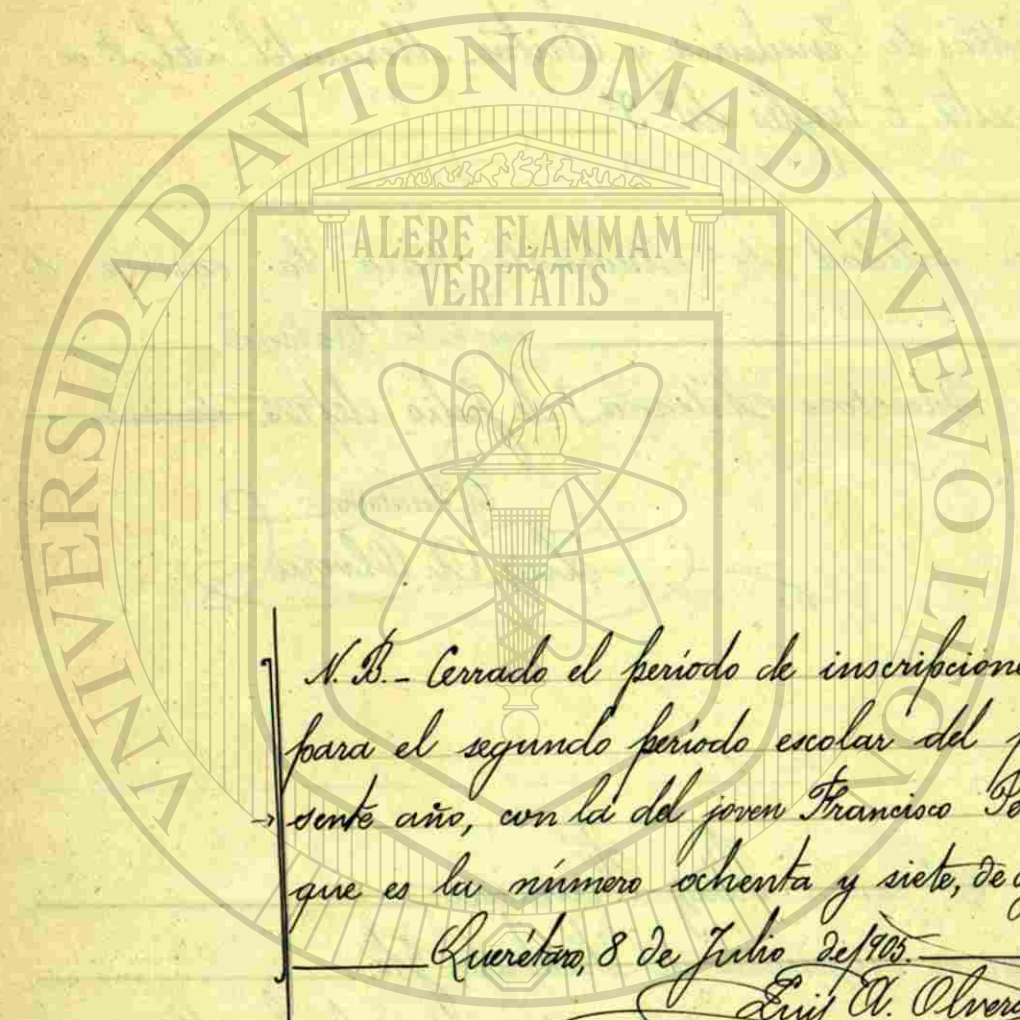 UNIVERSIDAD AVTONOMA D NVEVO LEON
ALERE FLAMMAM
VERITATIS
N. B. - Cerrado el período de inscripcione
para el segundo período escolar del p
sente año, con la del joven Francisco
que es la número ochenta y siete, de
Querétaro, 8 de Julio de 1905.
Luis A. Olver